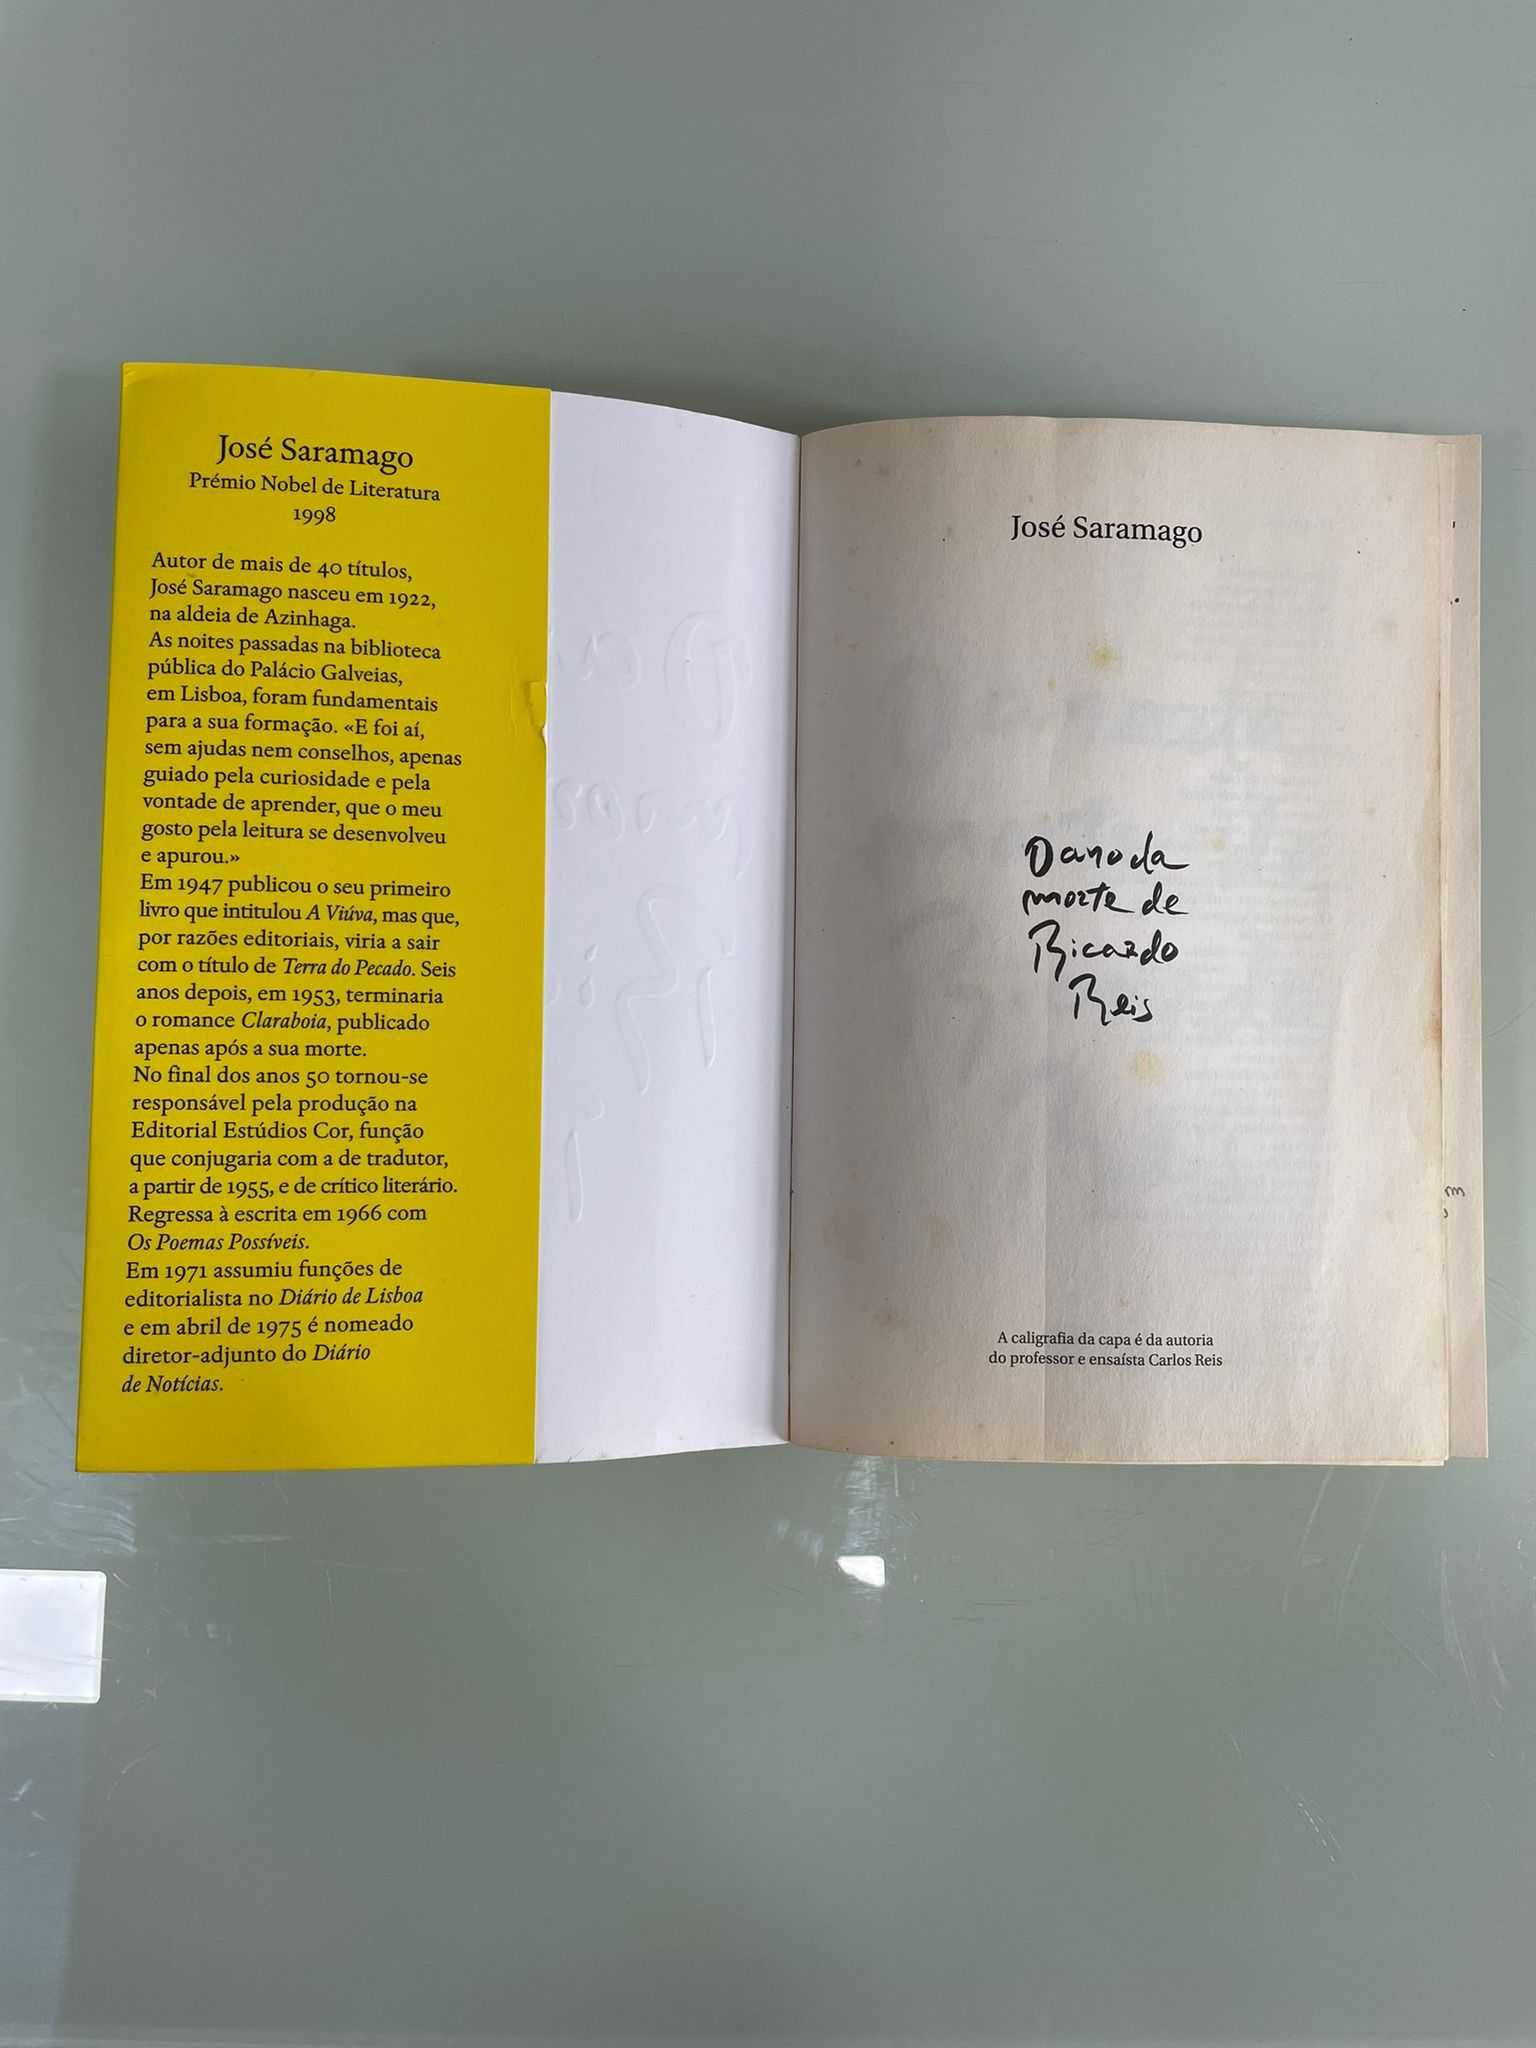 José Saramago
Prémio Nobel de Literatura
1998
Autor de mais de 40 títulos,
José Saramago nasceu em 1922,
na aldeia de Azinhaga.
As noites passadas na biblioteca
pública do Palácio Galveias,
em Lisboa, foram fundamentais
para a sua formação. «E foi aí,
sem ajudas nem conselhos, apenas
guiado pela curiosidade e pela
vontade de aprender, que o meu
gosto pela leitura se desenvolveu
e apurou.»
Em 1947 publicou o seu primeiro
livro que intitulou A Viúva, mas que,
por razões editoriais, viria a sair
com o título de Terra do Pecado. Seis
anos depois, em 1953, terminaria
o romance Claraboia, publicado
apenas após a sua morte.
No final dos anos 50 tornou-se
responsável pela produção na
Editorial Estúdios Cor, função
que conjugaria com a de tradutor,
a partir de 1955, e de crítico literário.
Regressa à escrita em 1966 com
Os Poemas Possíveis.
Em 1971 assumiu funções de
editorialista no Diário de Lisboa
e em abril de 1975 é nomeado
diretor-adjunto do Diário
de Notícias.
José Saramago
O ano da
morte de
Ricardo
Reis
A caligrafia da capa é da autoria
do professor e ensaísta Carlos Reis